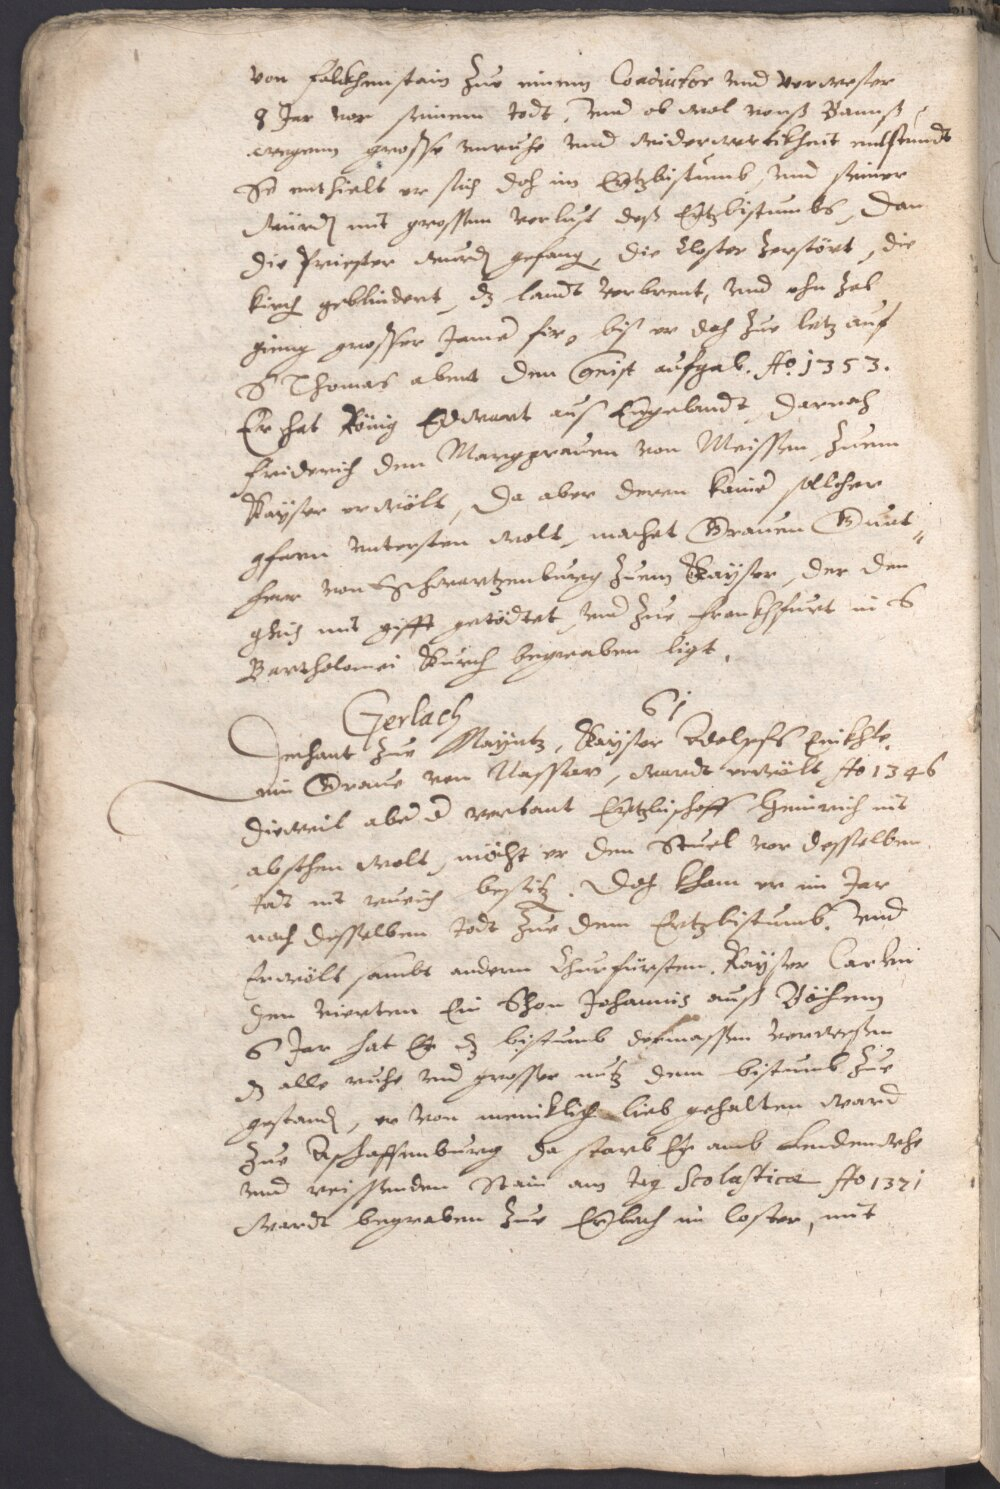 von Falckhenstain zue einem Coadiutor vnd verweser
8 Jar vor seinem todt, vnd ob wol vonß Bannß
wegenn grosse vnruhe vnd widerwertikheit entstundt
So enthielt er sich doch im Ertzbistumb vnd seiner
würd mit grossem verlust deß Ertzbistumbs, Dan
die Priester wurd gefang, die Closter zerstört, die
kirch geblindert, dz landt verbrent, vnd ohn zal
gieng grosser Jamer fir, biß er doch zue letz auf
S Thomas abent den Geist aufgab. Ao. 1353.
Er hat König Edwart aus Engelandt, darnach
Friderich den Marggrauen von Meissen zuem
Kayser erwölt, da aber deren kainer sollcher
gfern vntersten wolt, machet Grauen Gunt„
herr von Schwartzenburg zuem Kayser, der den
glich mit gifft getödtet vnd zue Franckhfurt in S
Bartholomei Kürch begraben ligt.
Gerlach 61
Dechant zue Mayntz, Kayser Adolphs Enikhle,
ein Graue von Nassaw, wardt erwölt Ao 1346
dieweil aber der verbant Ertzbischoff Heinrich nit
abstehen wolt, möcht er den Stuel vor desselben
todt nit ruewig besitz. Doch kham er im Jar
nach desselben todt zue dem Ertzbistumb. vnd
Erwölt sambt andern Churfürsten, Kayser Carln
den vierten Ein Shon Johannis auß Böhem
6 Jar hat Er dz bistumb dermassen verwesen
dz alle ruhe vnd grosser nutz dem bistumb zue
gestand, er von meniklich lieb gehalten ward
zue Aschaffenburg da starb Er amb Lendenwehe
vnd reissenden Stain am tag Scolasticæ Ao 1371
wardt begraben zue Erbach im Closter, mit